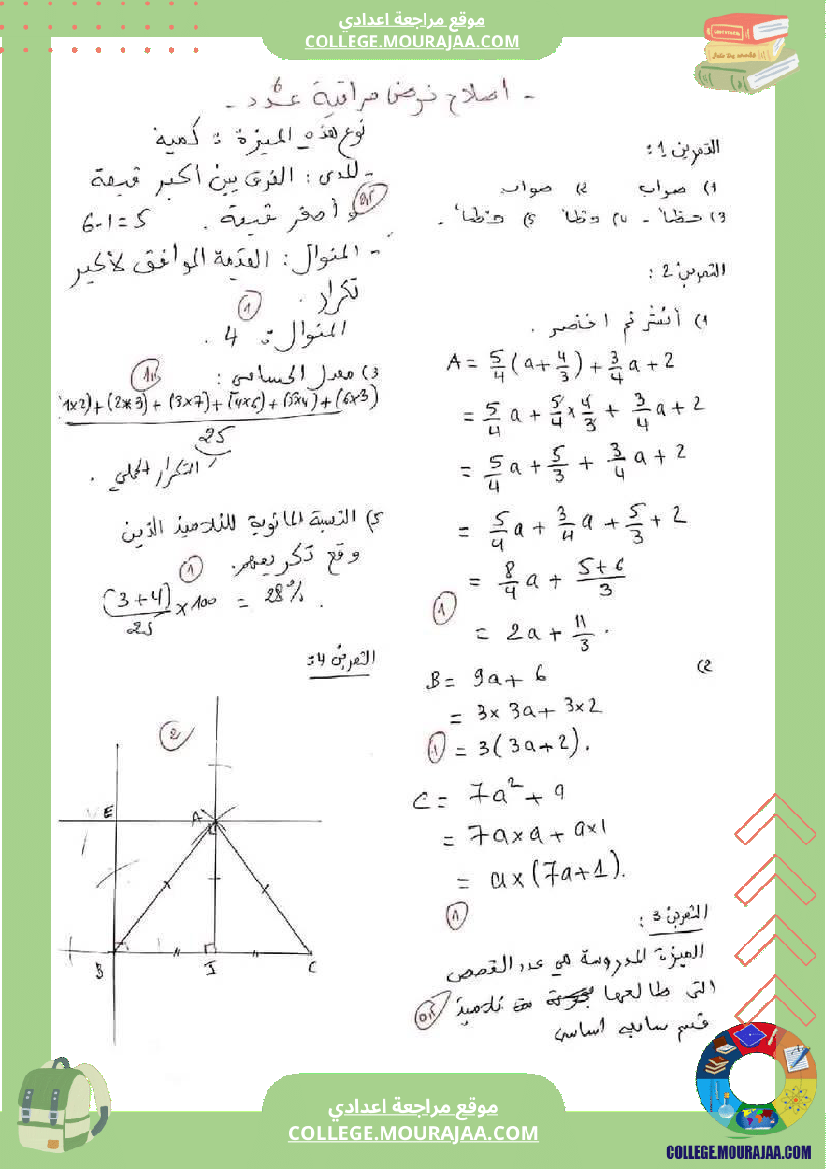 موقع مراجعة اعدادي
COLLEGE.MOURAJAA.COM
- اصلاح فرض مراقبة عدد 6 -
التمرين 1:
1) صواب 2) صواب
3) خطأ - 4) خطأ 5) خطأ.
التمرين 2:
1) أنشر ثم اختصر.
A = 5/4 (a + 4/3) + 3/4 a + 2
= 5/4 a + 5/4 × 4/3 + 3/4 a + 2
= 5/4 a + 5/3 + 3/4 a + 2
= 5/4 a + 3/4 a + 5/3 + 2
= 8/4 a + (5+6)/3
1
= 2a + 11/3 .
2)
B = 9a + 6
= 3 × 3a + 3×2
1 = 3(3a+2).
C = 7a² + a
= 7a×a + a×1
= a×(7a+1).
1
التمرين 3:
الميزة المدروسة هي عدد القصص
التي طالعها تلاميذ
0,5
قسم سابعة أساسي
نوع هذه الميزة : كمية
- المدى : الفرق بين اكبر قيمة
و أصغر قيمة . 6-1=5
- المنوال : القيمة الموافق لأكبر
تكرار .
1
المنوال : 4 .
3) معدل الحسابي :
1×2)+(2×3)+(3×7)+(4×6)+(5×4)+(6×3)
25
التكرار الجملي .
5) النسبة المائوية للتلاميذ الذين
وقع تكريمهم.
1
(3+4)/25 × 100 = 28% .
التمرين 4:
2
E A
B I C
موقع مراجعة اعدادي
COLLEGE.MOURAJAA.COM
COLLEGE.MOURAJAA.COM